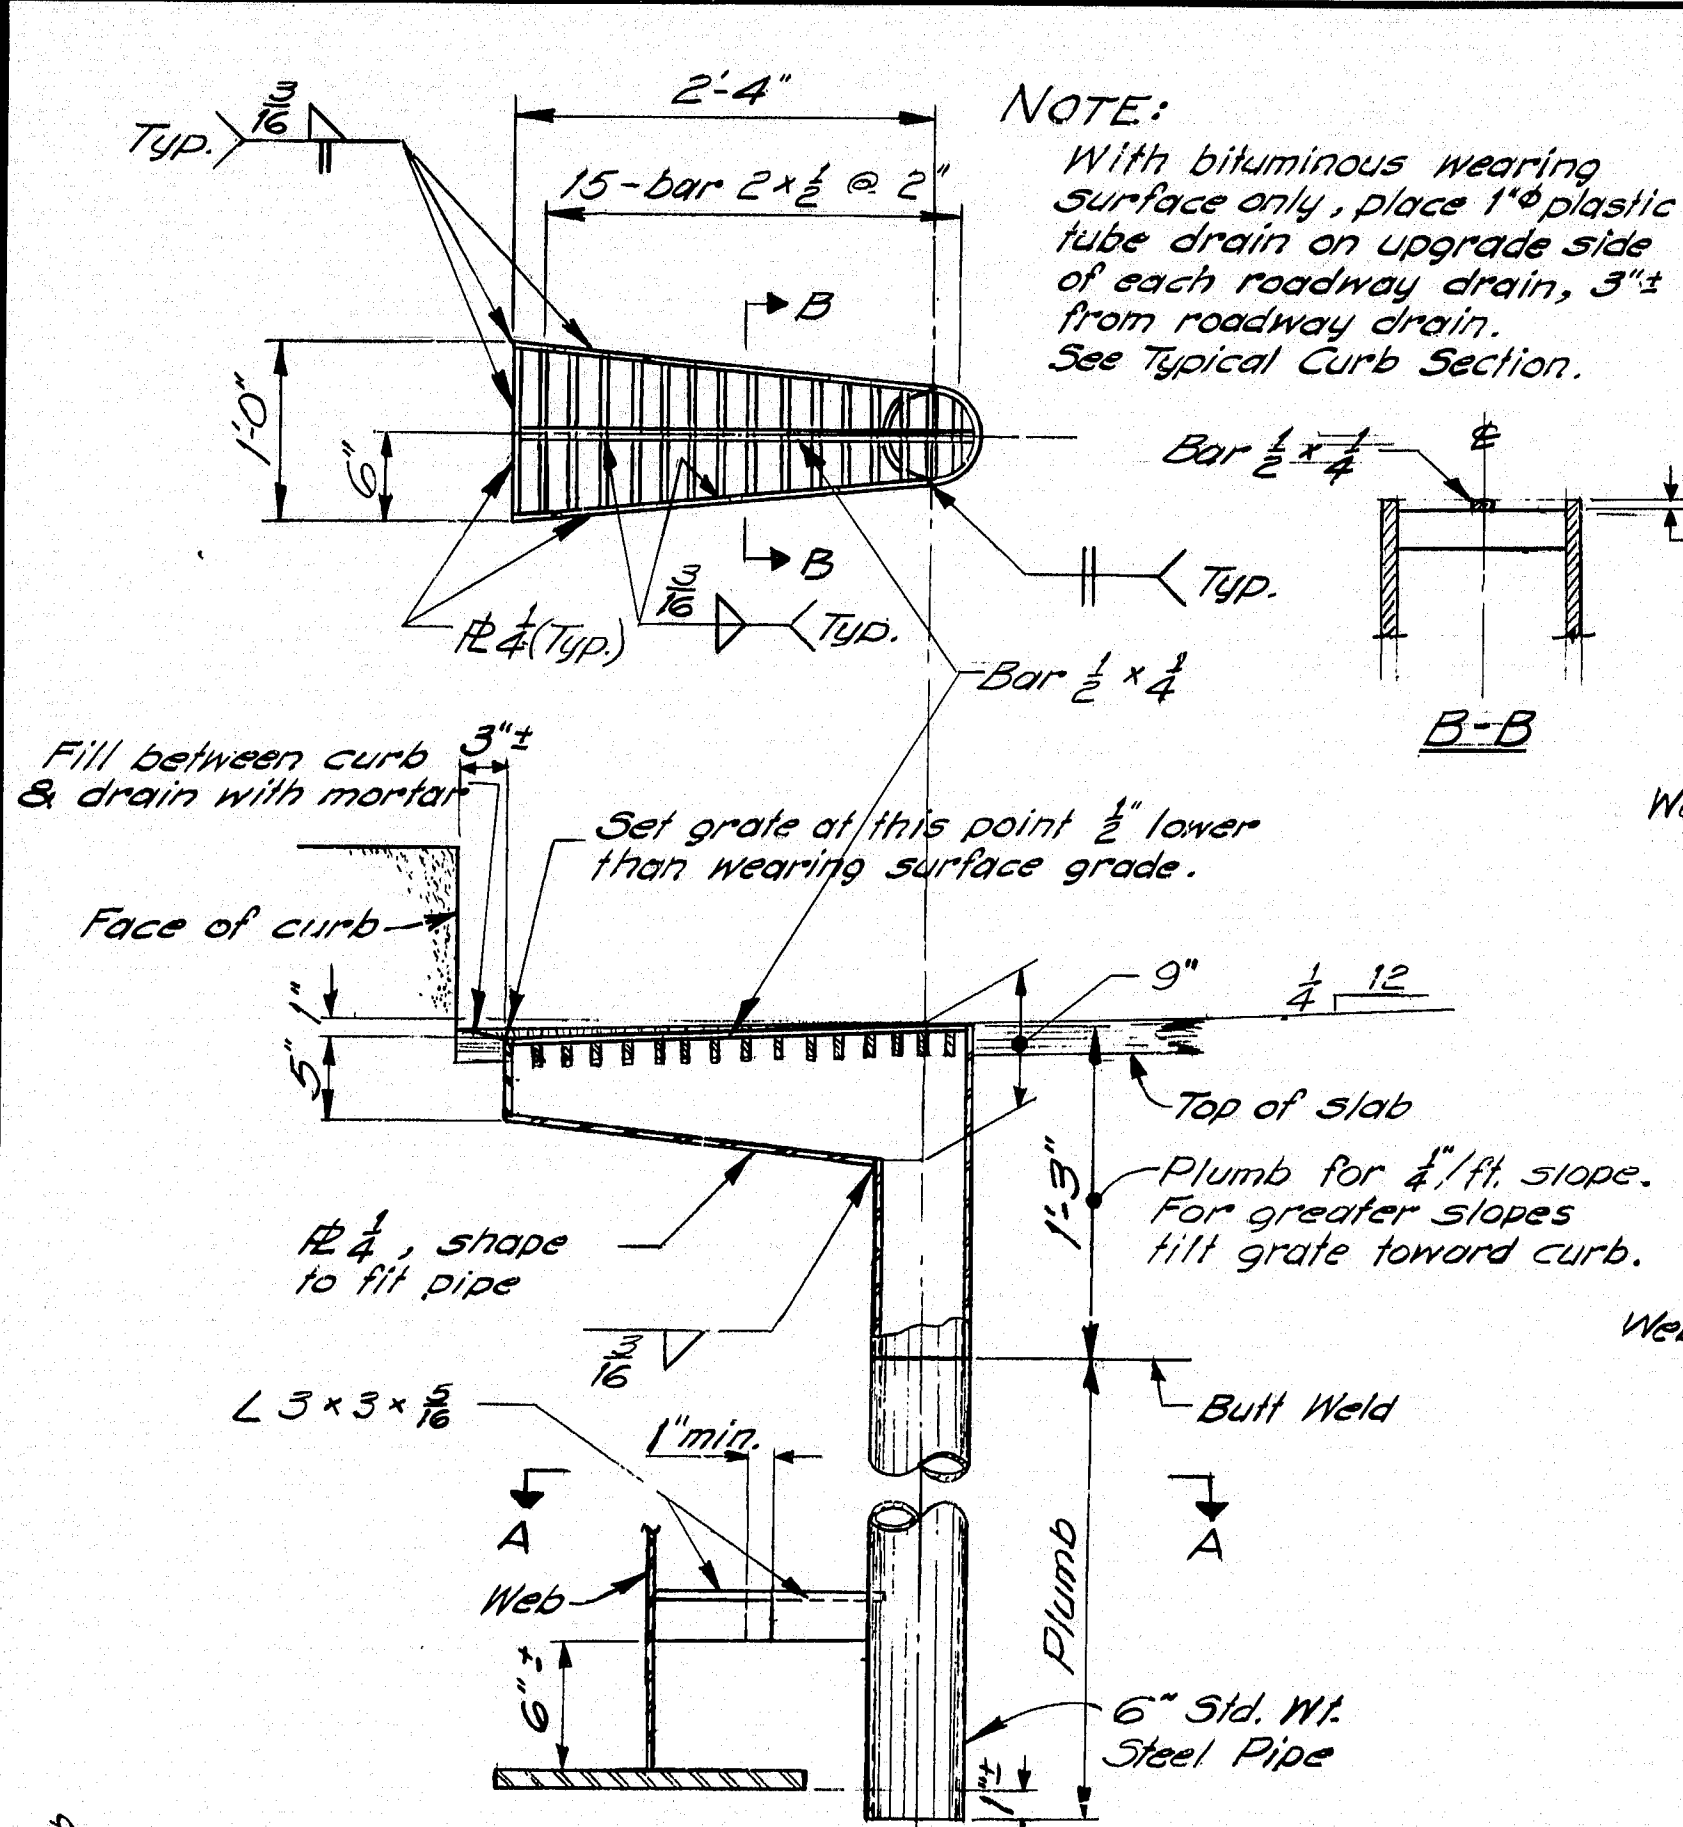 2'-4"
NOTE:
Typ. 3/16
15-bar 2 x 1/2 @ 2"
With bituminous wearing
surface only, place 1"ϕ plastic
tube drain on upgrade side
of each roadway drain, 3"±
from roadway drain.
See Typical Curb Section.
B
1'-0"
6"
Bar 1/2 x 1/4
℄
B
3/16 Typ.
Typ.
PL 1/4 (Typ.)
Bar 1/2 x 1/4
B-B
Fill between curb
& drain with mortar
3"±
Set grate at this point 1/2" lower
than wearing surface grade.
Face of curb
9"
1/4 12
1"
5"
Top of slab
1'-3"
Plumb for 1/4"/ft. slope.
For greater slopes
tilt grate toward curb.
PL 1/4, shape
to fit pipe
3/16
L 3 x 3 x 5/16
1" min.
Butt Weld
A
A
Web
Plumb
6" ±
6" Std. Wt.
Steel Pipe
1"±